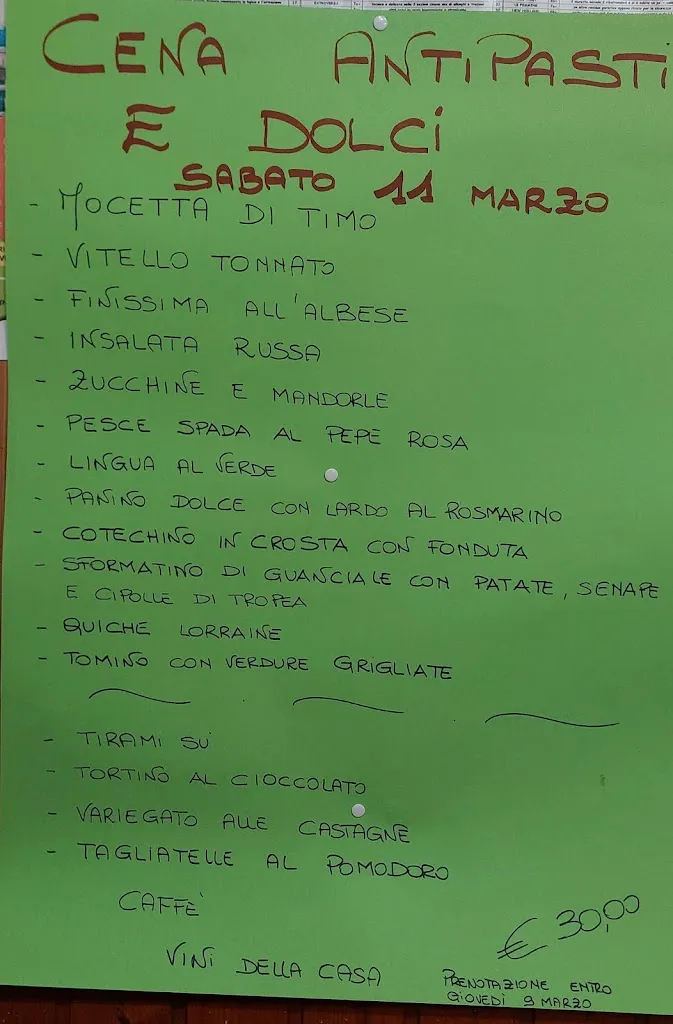 CENA ANTIPASTI
E DOLCI
SABATO 11 MARZO
- MOCETTA DI TIMO
- VITELLO TONNATO
- FINISSIMA ALL'ALBESE
- INSALATA RUSSA
- ZUCCHINE E MANDORLE
- PESCE SPADA AL PEPE ROSA
- LINGUA AL VERDE
- PANINO DOLCE CON LARDO AL ROSMARINO
- COTECHINO IN CROSTA CON FONDUTA
- SFORMATINO DI GUANCIALE CON PATATE, SENAPE
E CIPOLLE DI TROPEA
- QUICHE LORRAINE
- TOMINO CON VERDURE GRIGLIATE
- TIRAMI SU
- TORTINO AL CIOCCOLATO
- VARIEGATO ALLE CASTAGNE
- TAGLIATELLE AL POMODORO
CAFFE'
VINI DELLA CASA
€ 30,00
PRENOTAZIONE ENTRO
GIOVEDÌ 9 MARZO